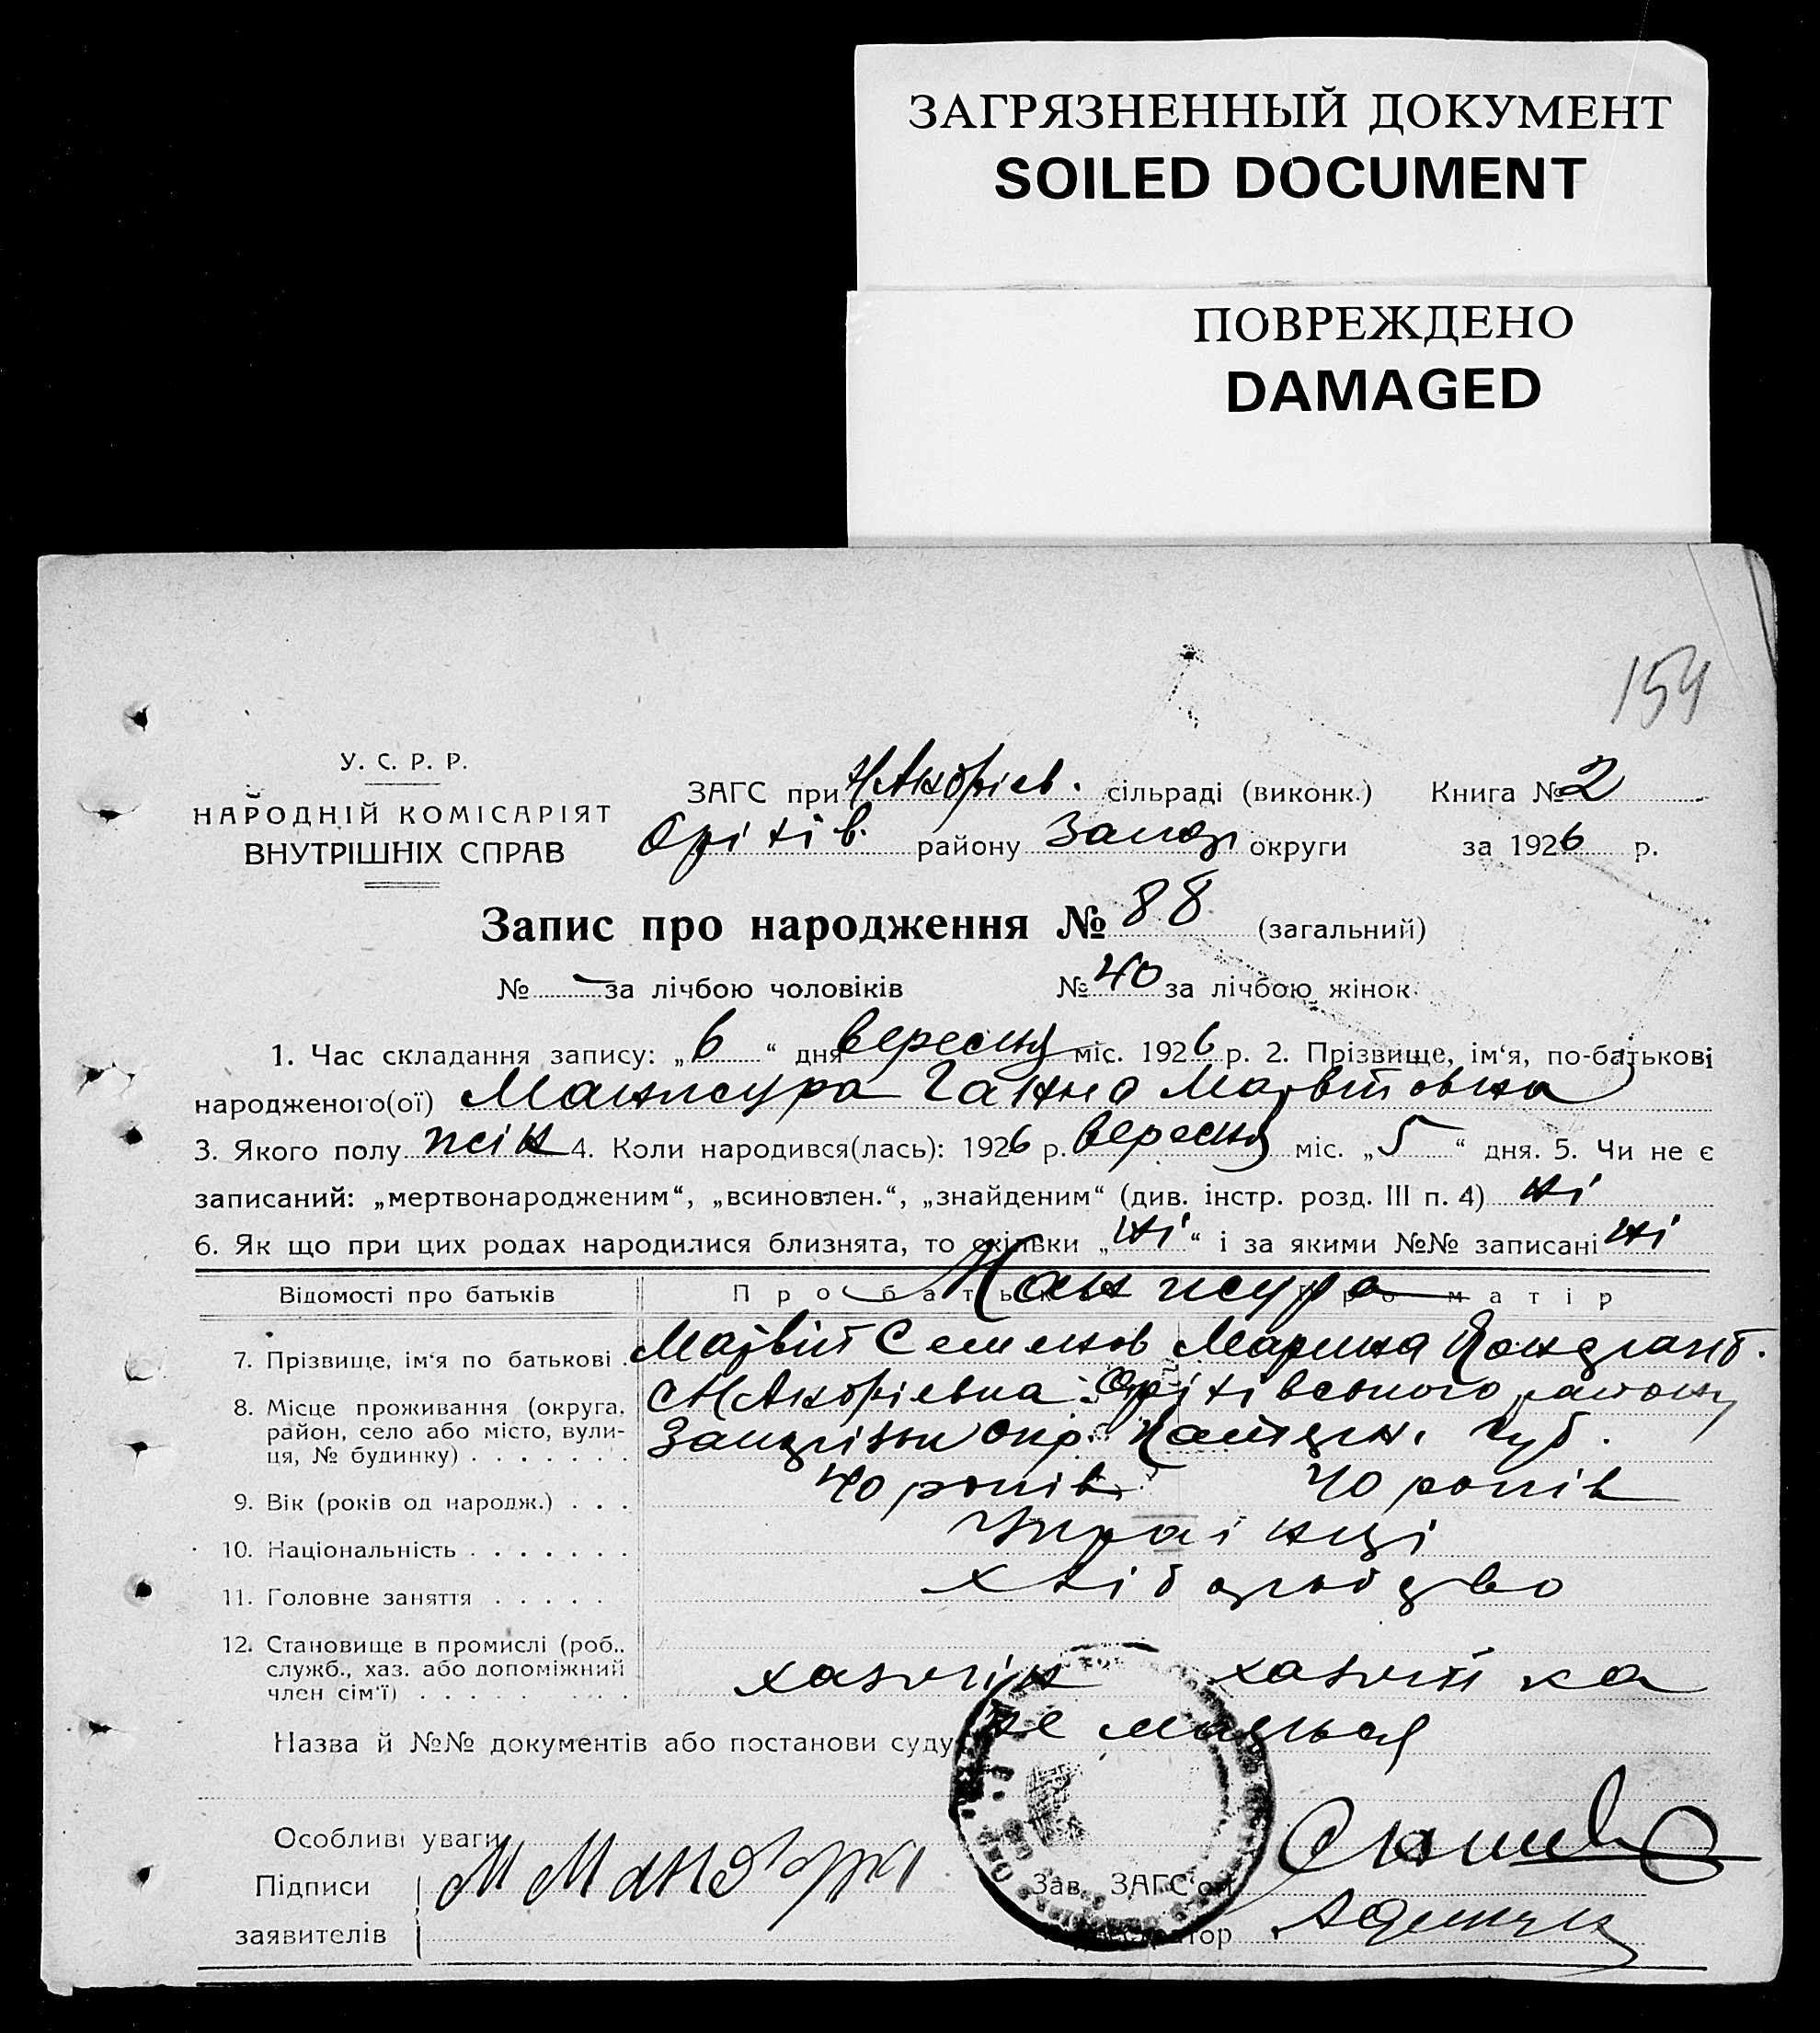 ЗАГРЯЗНЕННЫЙ ДОКУМЕНТ
SOILED DOCUMENT
ПОВРЕЖДЕНО
DAMAGED
154
У. С. Р. Р.
НАРОДНІЙ КОМІСАРІЯТ
ВНУТРІШНІХ СПРАВ
ЗАГС при НАндріев. сільраді (виконк.) Книга № 2
Оріхів. району Запор округи за 1926 р.
Запис про народження № 88 (загальний)
№ - за лічбою чоловіків № 40 за лічбою жінок
1. Час складання запису: „6“ дня вересня міс. 1926 р. 2. Прізвище, ім'я, по-батькові
народженого(ої) Манжура Ганна Матвіївна
3. Якого полу жін 4. Коли народився(лась): 1926 р. вересня міс. „5“ дня. 5. Чи не є
записаний: „мертвонародженим“, „всиновлен.“, „знайденим“ (див. інстр. розд. III п. 4) ні
6. Як що при цих родах народилися близнята, то скільки „ні“ і за якими №№ записані ні
Відомості про батьків Про батька Про матір
Манжура
7. Прізвище, ім'я по батькові . Матвій Семенов Марина Кондрат.
8. Місце проживання (округа, район, село або місто, вулиця, № будинку) . . . . . . . Оріхівського району
Запорізьк Окр. Катерин. губ.
9. Вік (років од народж.) . . . 40 років 40 років
10. Національність . . . . . . . Українці
11. Головне заняття . . . . . хліборобство
12. Становище в промислі (роб., служб., хаз. або допоміжний член сім'ї) . . . . . . . . . хазяїн хазяйка
Назва й №№ документів або постанови суду не мається
Особливі уваги
Підписи заявителів М Манжура
Зав. ЗАГС'ом